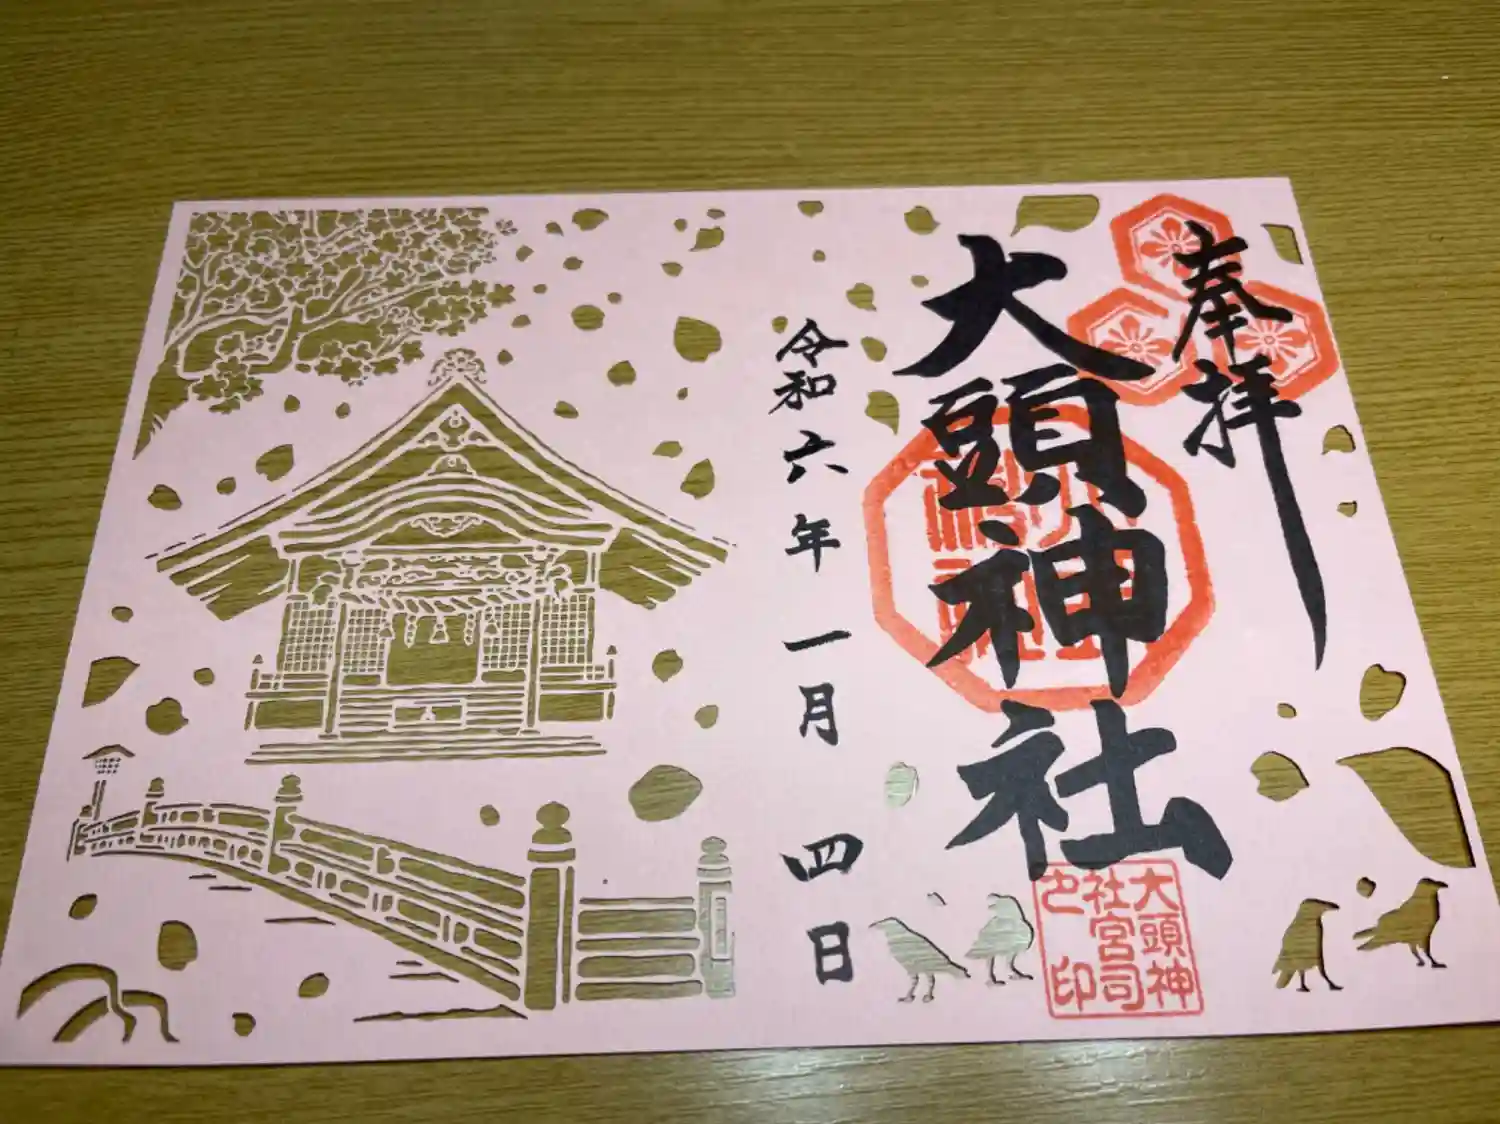 奉拝
大頭神社
令和六年一月四日
大頭神
社宮司
之印